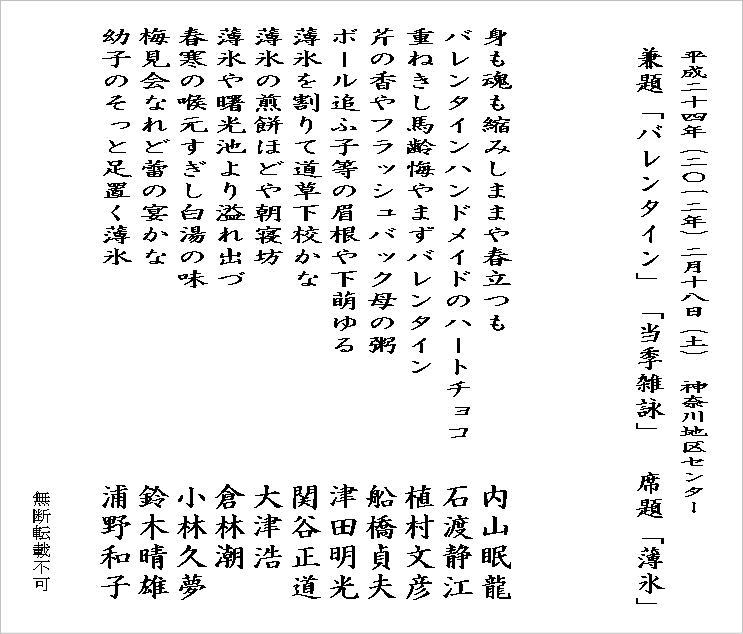 平成二十四年（二〇一二年）二月十八日（土）　神奈川地区センター
兼題「バレンタイン」「当季雑詠」　席題「薄氷」
身も魂も縮みしままや春立つも　内山眠龍
バレンタインハンドメイドのハートチョコ　石渡静江
重ねきし馬齢悔やまずバレンタイン　植村文彦
芹の香やフラッシュバック母の粥　船橋貞夫
ボール追ふ子等の眉根や下萌ゆる　津田明光
薄氷を割りて道草下校かな　関谷正道
薄氷の煎餅ほどや朝寝坊　大津浩
薄氷や曙光池より溢れ出づ　倉林潮
春寒の喉元すぎし白湯の味　小林久夢
梅見会なれど蕾の宴かな　鈴木晴雄
幼子のそっと足置く薄氷　浦野和子
無断転載不可